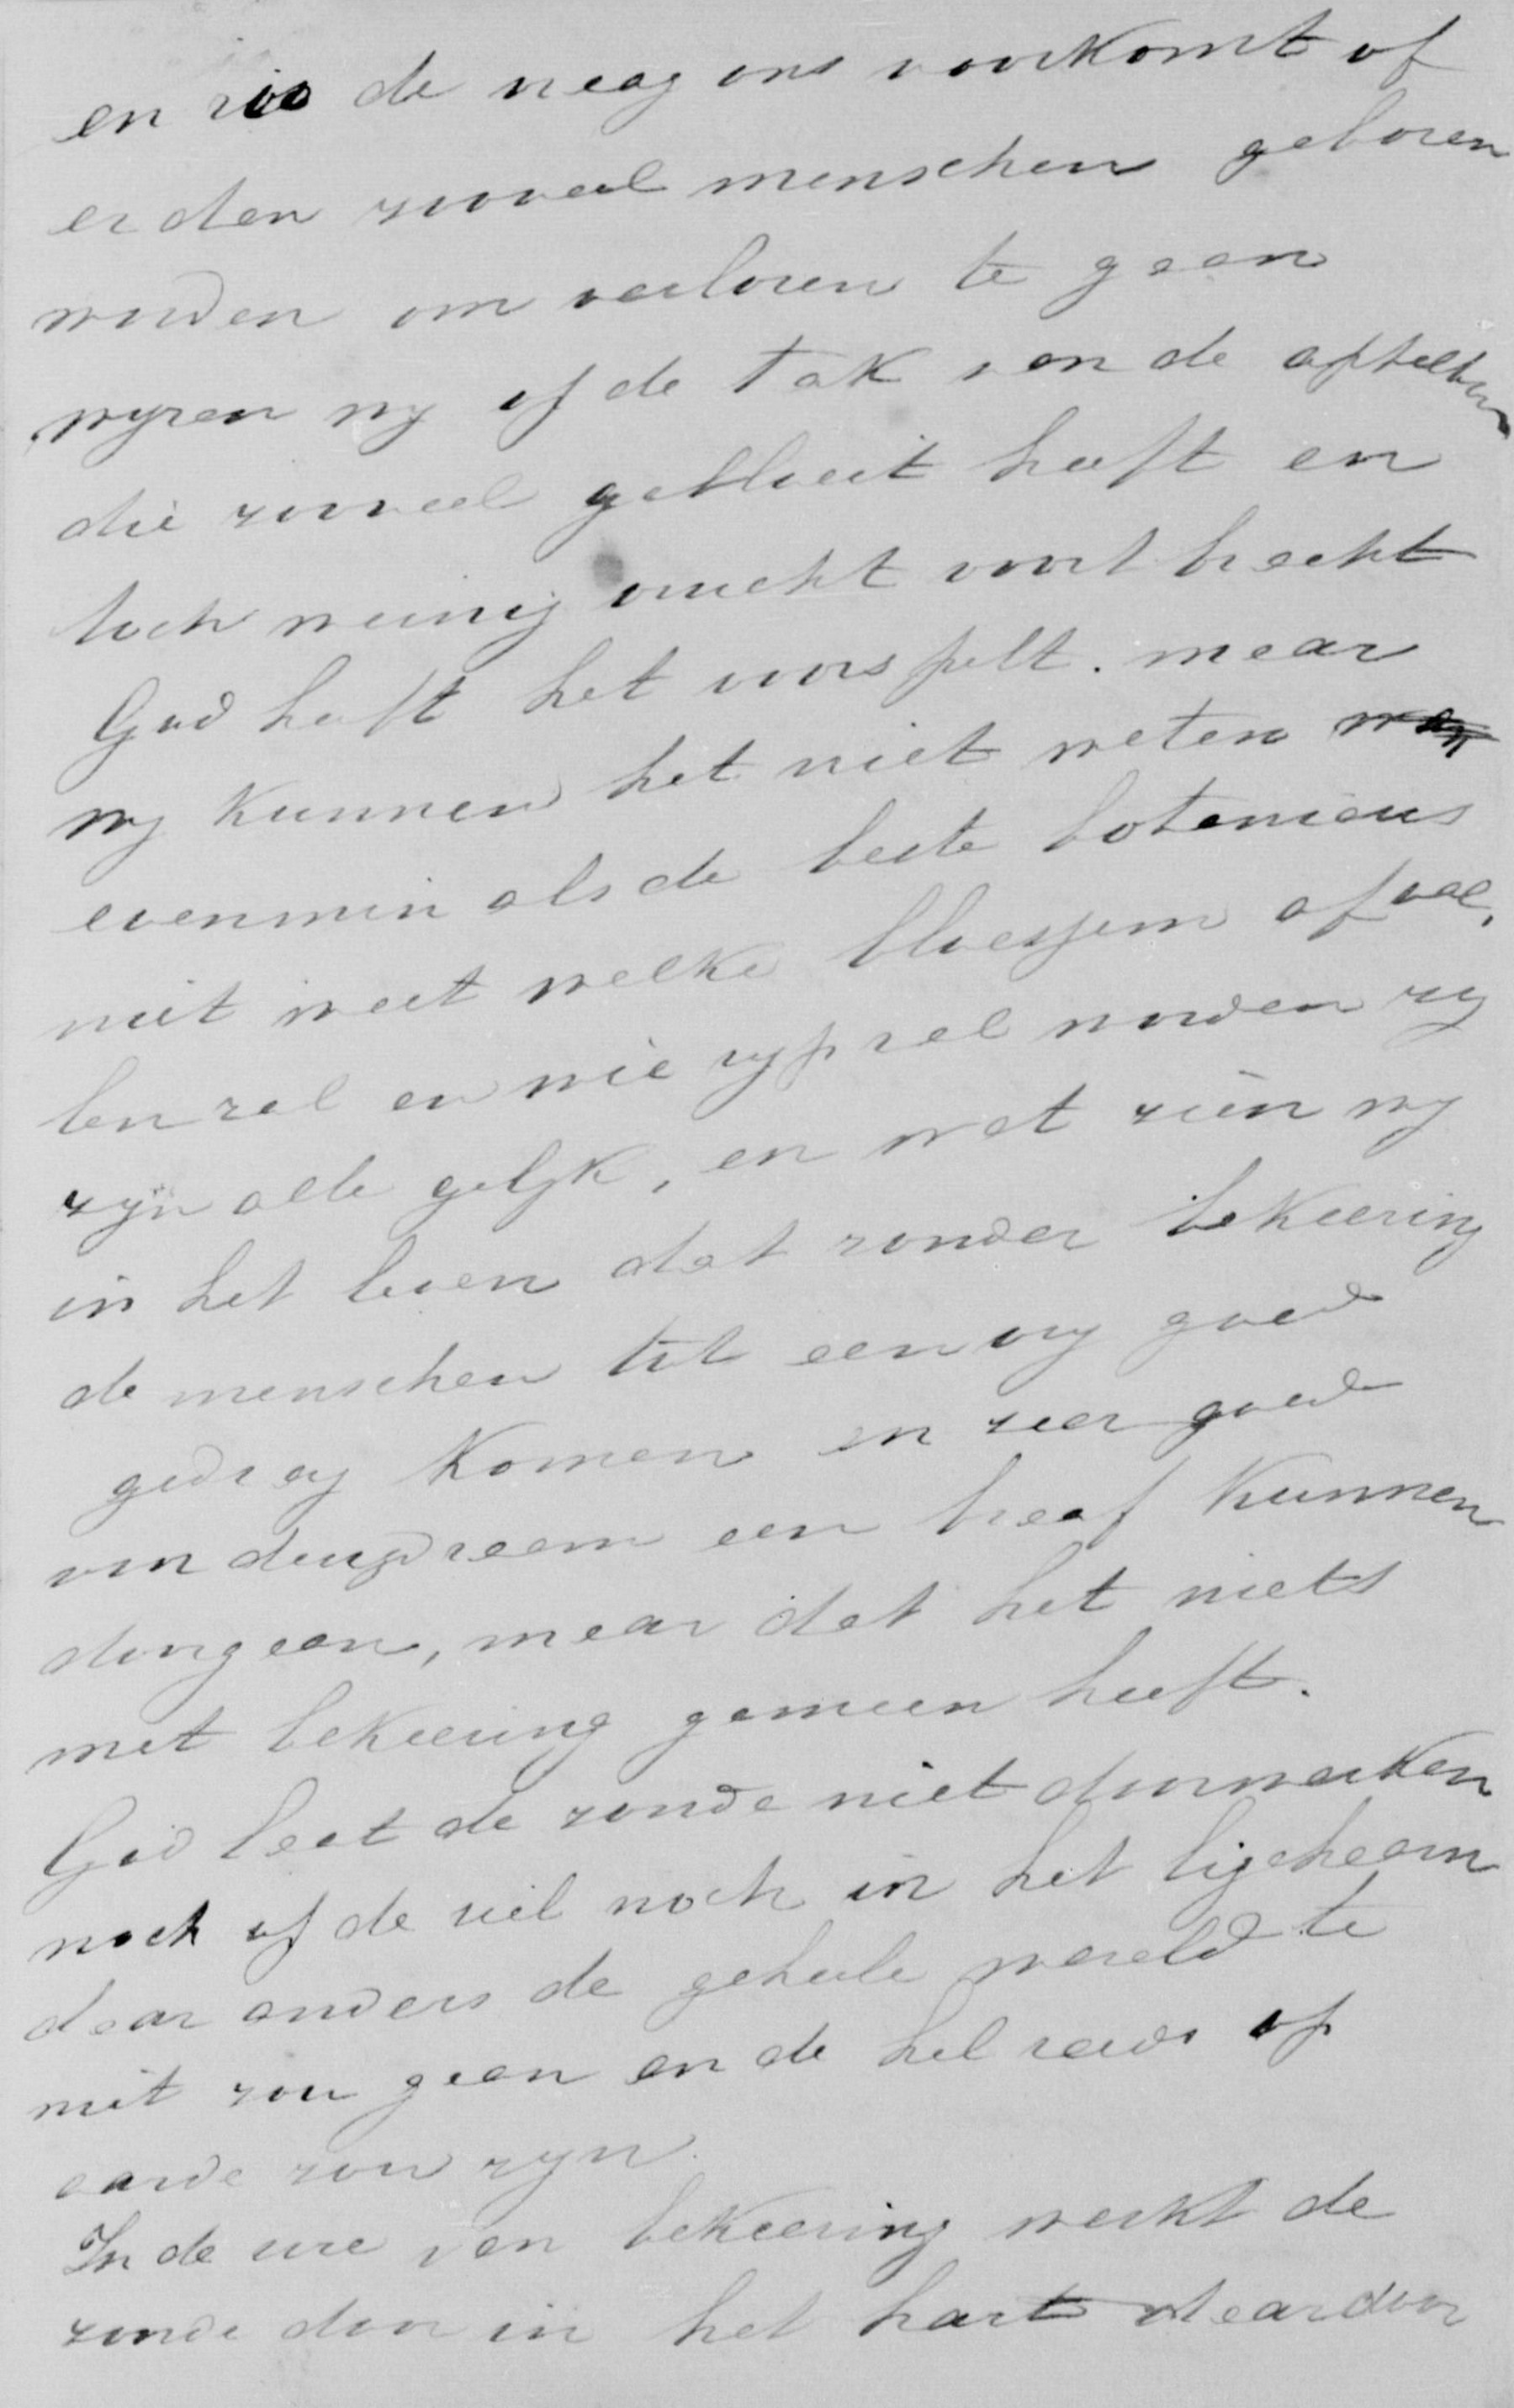 en zoo de vraag ons voorkomt of
er dan zooveel menschen geboren
worden om verloren te gaan
wyzen wy op de tak van de appelboom
die zooveel gebloeit heeft en
toch weinig vrucht voort bracht
God heeft het voorspelt. maar
wy kunnen het niet weten
evenmin als de beste botanicus
niet weet welke bloessem afval,
len zal en wie ryp zal worden zy
zyn alle gelyk, en wat zien wy
in het leven dat zonder bekeering
de menschen tot eenvrg goed
gedrag komen en zeer goed
van deugdzaam een braaf kunnen
doorgaan, maar dat het niets
met bekeering gemeen heeft.
God laat de zonde niet doorwerken
noch op de ziel noch in het ligchaam
daar anders de geheele wereld te
niet zou gaan en de hel reeds op
aarde zou zyn.
In de ure van bekeering werkt de
zonde door in het hart daardoor